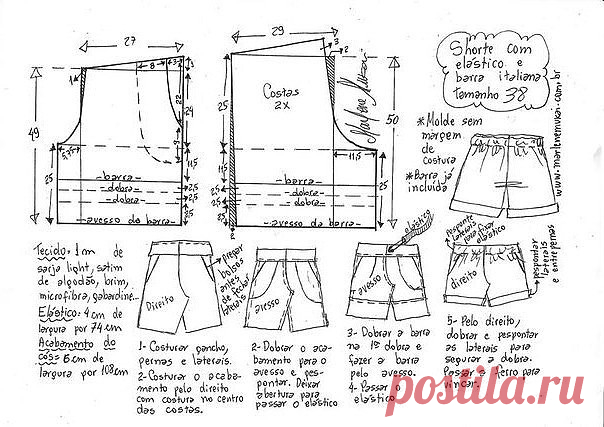 27
29
3
2
1
8
3
3
22
25
49
9
5,75
11,5
25
2,5
2,5
25
barra
dobra
dobra
avesso da barra
Costas
2X
Marlene Mukai
25
11,5
2,5
2,5
25
50
11,5
25
2
barra
dobra
dobra
avesso da barra
Shorte com
elástico e
barra italiana
tamanho 38
www.marlenemukai.com.br
*Molde sem
margem
de costura
*Barra já
incluída
Tecido: 1m de
sarja light, satim
de algodão, brim,
microfibra, gabardine...
Elástico: 4cm de
largura por 74cm
Acabamento do
cós: 6cm de
largura por 108cm
Direito
Pregar
bolsos
antes
de fechar
laterais
avesso
avesso
elástico
pesponte
laterais
para fixar
elástico
direito
pespontar
laterais
e entrepernas
1- Costurar gancho,
pernas e laterais.
2- Costurar o acaba-
mento pelo direito
com costura no centro
das costas.
2- Dobrar o aca-
bamento para o
avesso e pes-
pontar. Deixar
abertura para
passar o elástico
3- Dobrar a barra
na 1ª dobra e
fazer a barra
pelo avesso.
4- Passar o
elástico
5- Pelo direito,
dobrar e pespontar
as laterais para
segurar a dobra.
Passar a ferro para
vincar.
postila.ru